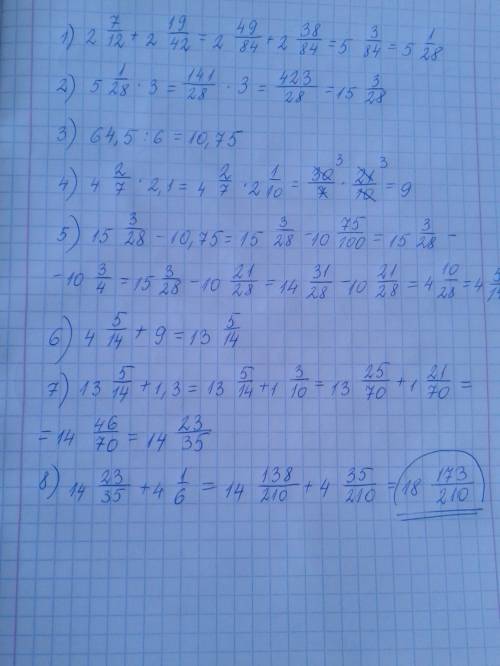 1) 2 7/12 + 2 19/42 = 2 49/84 + 2 38/84 = 5 3/84 = 5 1/28
2) 5 1/28 · 3 = 141/28 · 3 = 423/28 = 15 3/28
3) 64,5 : 6 = 10,75
4) 4 2/7 · 2,1 = 4 2/7 · 2 1/10 = 30/7 3 · 21/10 3 = 9
5) 15 3/28 - 10,75 = 15 3/28 - 10 75/100 = 15 3/28 -
- 10 3/4 = 15 3/28 - 10 21/28 = 14 31/28 - 10 21/28 = 4 10/28 = 4 5/14
6) 4 5/14 + 9 = 13 5/14
7) 13 5/14 + 1,3 = 13 5/14 + 1 3/10 = 13 25/70 + 1 21/70 =
= 14 46/70 = 14 23/35
8) 14 23/35 + 4 1/6 = 14 138/210 + 4 35/210 = 18 173/210